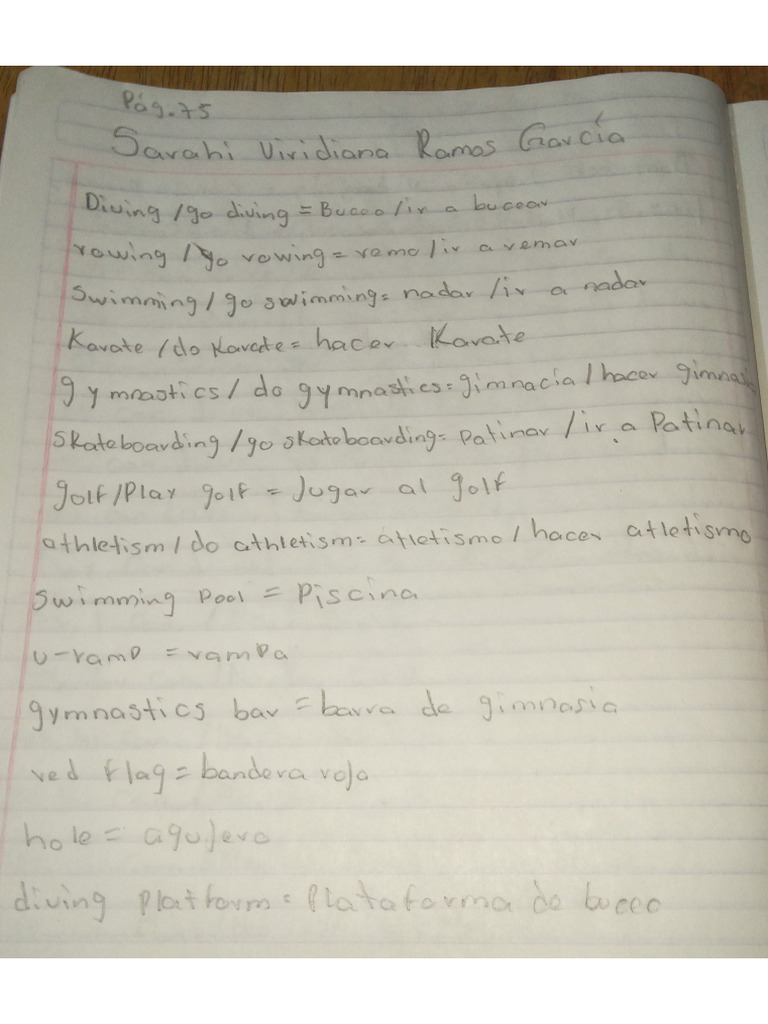 Pág.75
Sarahi Viridiana Ramos García
Diving /go diving = Buceo /ir a bucear
rowing /go rowing = remo /ir a remar
Swimming / go swimming= nadar /ir a nadar
Karate /do Karate= hacer Karate
gymnastics / do gymnastics= gimnacia / hacer gimnasi
Skateboarding /go skateboarding= Patinar /ir a Patinar
golf /Play golf = Jugar al golf
athletism / do athletism= atletismo / hacer atletismo
Swimming Pool = Piscina
u-ramp = rampa
gymnastics bar = barra de gimnasia
red flag = bandera roja
hole = agujero
diving Platform= Plataforma de buceo